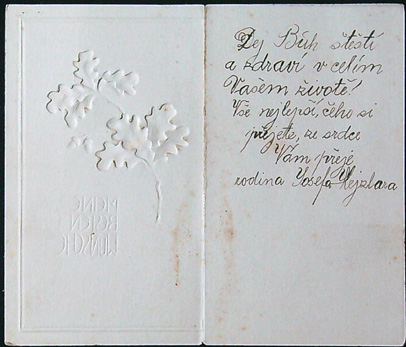 MEINE
BESTEN
WÜNSCHE
Dej Bůh štěstí
a zdraví v celím
Vašem životě!
Vše nejlepší, čeho si
přejete, ze srdce
Vám přeje
rodina Josefa Hejzlara